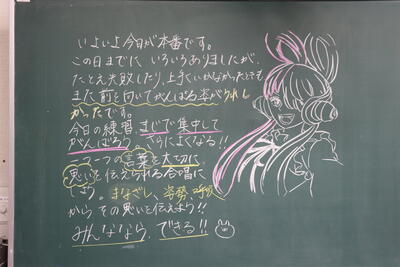 いよいよ今日が本番です。
この日までに、いろいろありましたが、
たとえ失敗したり、上手くいかなかったときも
また前を向いてがんばる姿がうれし
かったです。
今日の練習 まじで集中して
がんばろう。さらによくなる!!
一つ一つの言葉を大切に
思いを伝えられる合唱に
しよう。まなざし、姿勢、呼吸
からその思いを伝えよう!!
みんななら、できる!!